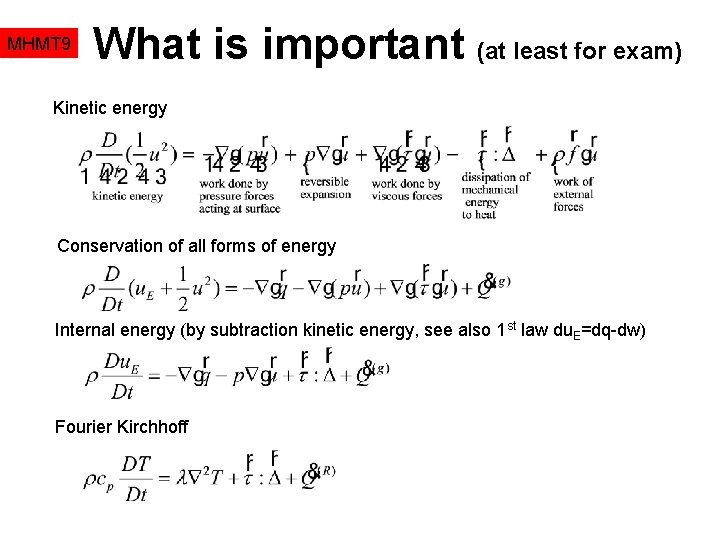 MHMT9
What is important (at least for exam)
Kinetic energy
ρ D/Dt (1/2 u²) = −∇g(pu) + p∇gu + ∇g(τgu) − τ : Δ + ρ f gu
kinetic energy
work done by pressure forces acting at surface
reversible expansion
work done by viscous forces
dissipation of mechanical energy to heat
work of external forces
Conservation of all forms of energy
ρ D/Dt (u_E + 1/2 u²) = −∇gq − ∇g(pu) + ∇g(τgu) + Q^(g)
Internal energy (by subtraction kinetic energy, see also 1st law du_E=dq-dw)
ρ Du_E/Dt = −∇gq − p∇gu + τ : Δ + Q^(g)
Fourier Kirchhoff
ρc_p DT/Dt = λ∇²T + τ : Δ + Q^(R)